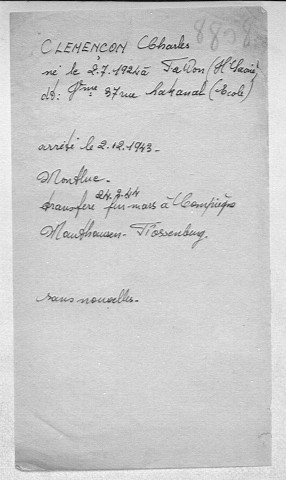 8808
CLEMENCON Charles
né le 2.7.1924 à (Hte Savoie)
dt: 37 rue Lakanal (Ecole)
arrêté le 2.12.1943-
Montluc-
24.3.44
transféré fin mars à Compiègne
Mauthausen- Flossenburg.
sans nouvelles-